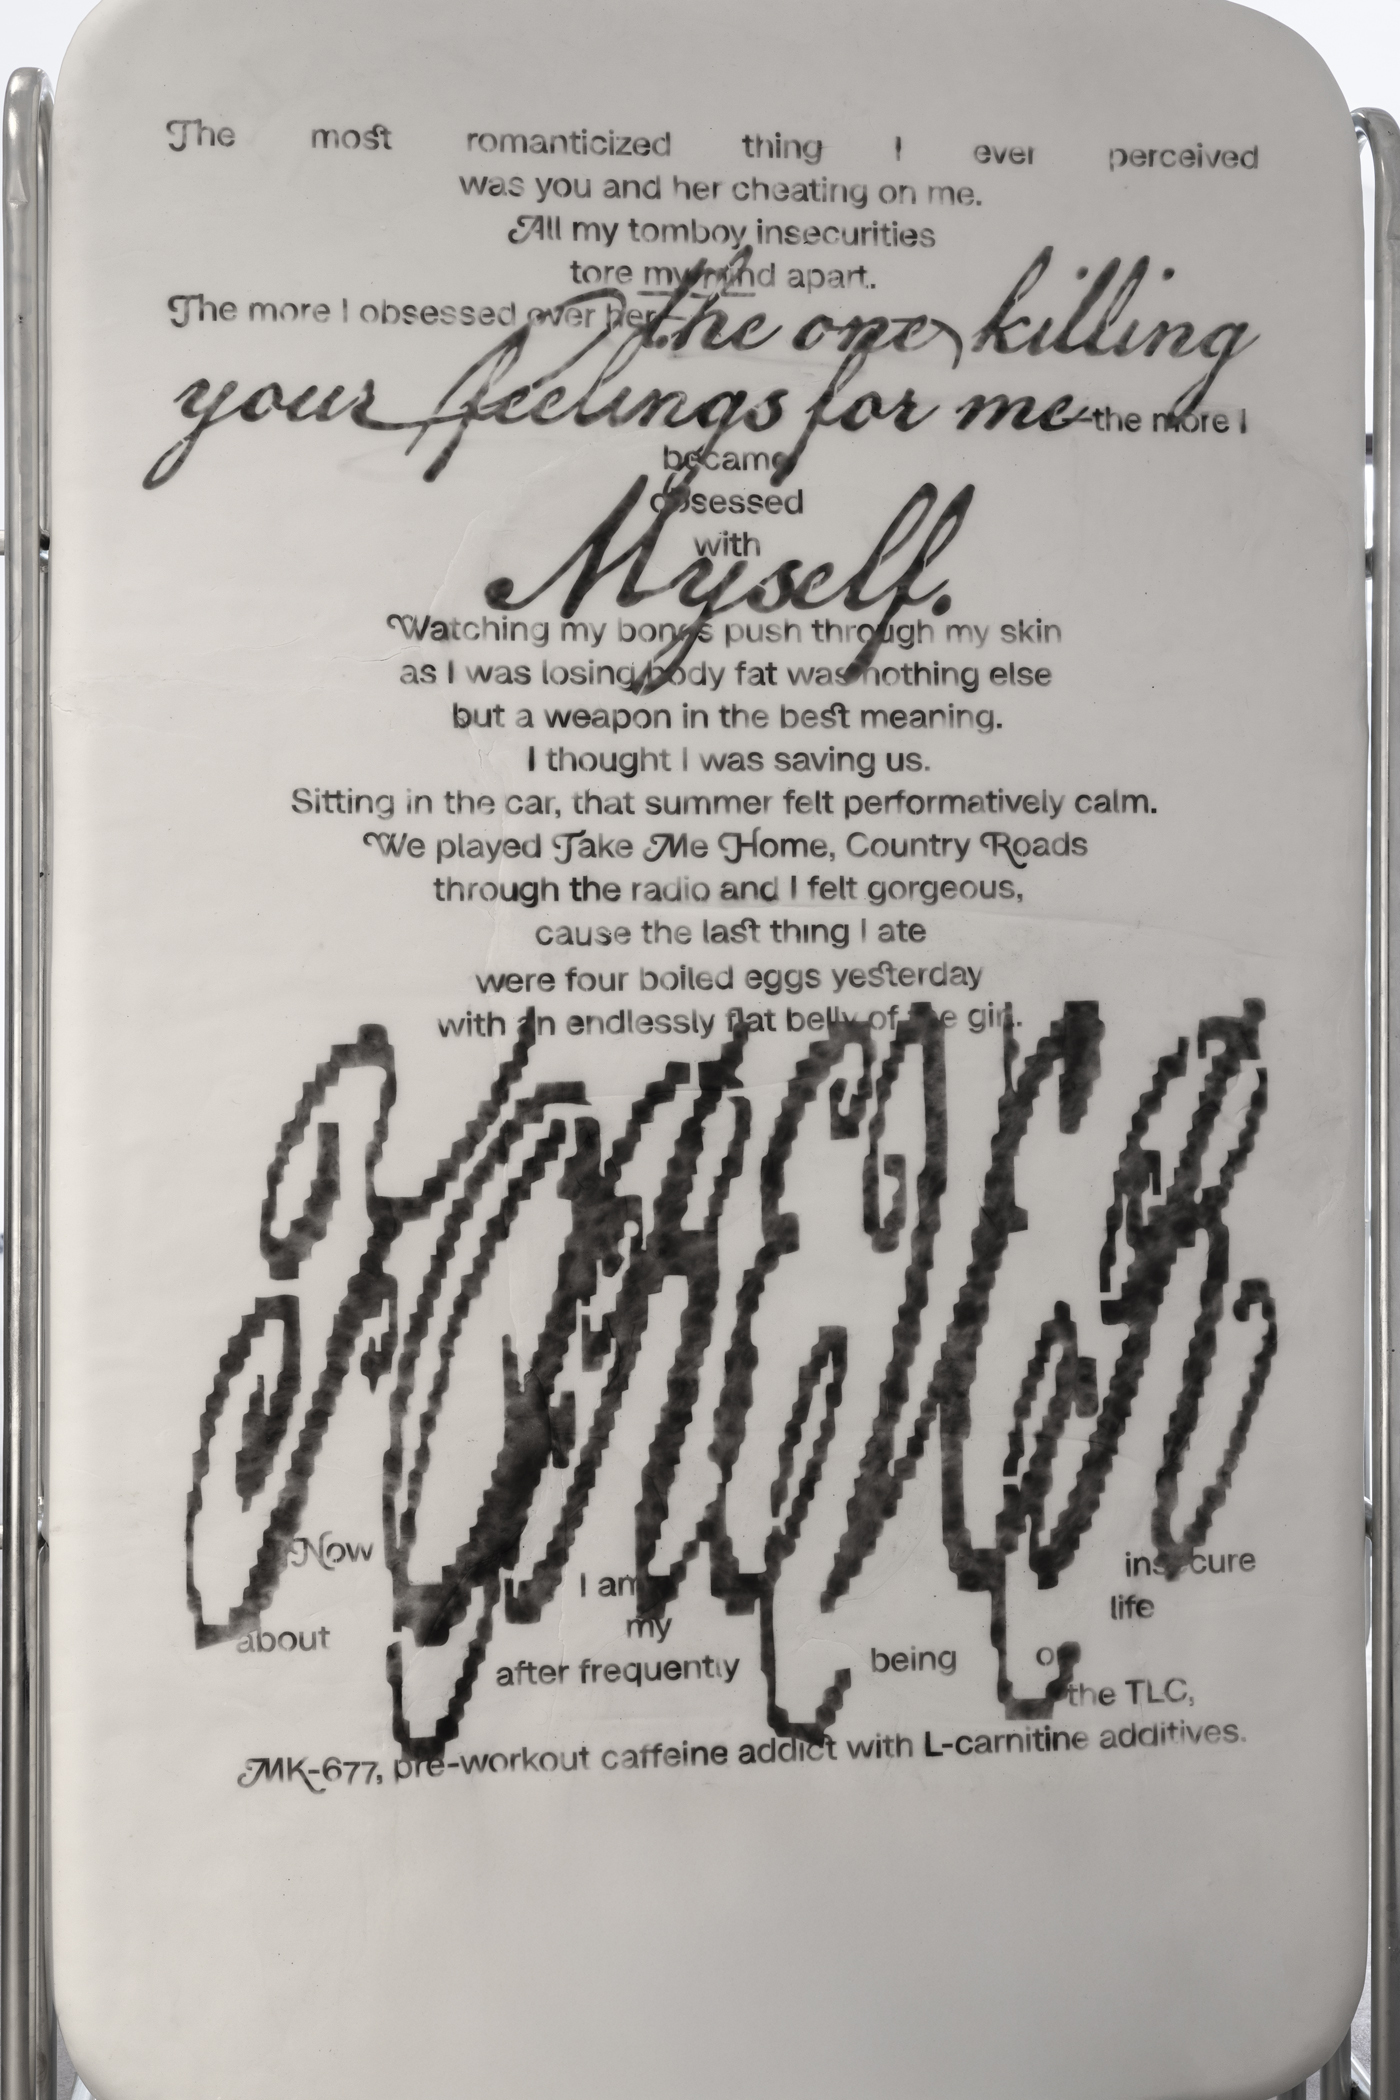 The most romanticized thing I ever perceived
was you and her cheating on me.
All my tomboy insecurities
tore my mind apart.
The more I obsessed over her—the one killing
your feelings for me—the more I
became
obsessed
with
Myself.
Watching my bones push through my skin
as I was losing body fat was nothing else
but a weapon in the best meaning.
I thought I was saving us.
Sitting in the car, that summer felt performatively calm.
We played Take Me Home, Country Roads
through the radio and I felt gorgeous,
cause the last thing I ate
were four boiled eggs yesterday
with an endlessly flat belly of the girl.
Now I am insecure
about my life
after frequently being on
the TLC,
MK-677, pre-workout caffeine addict with L-carnitine additives.